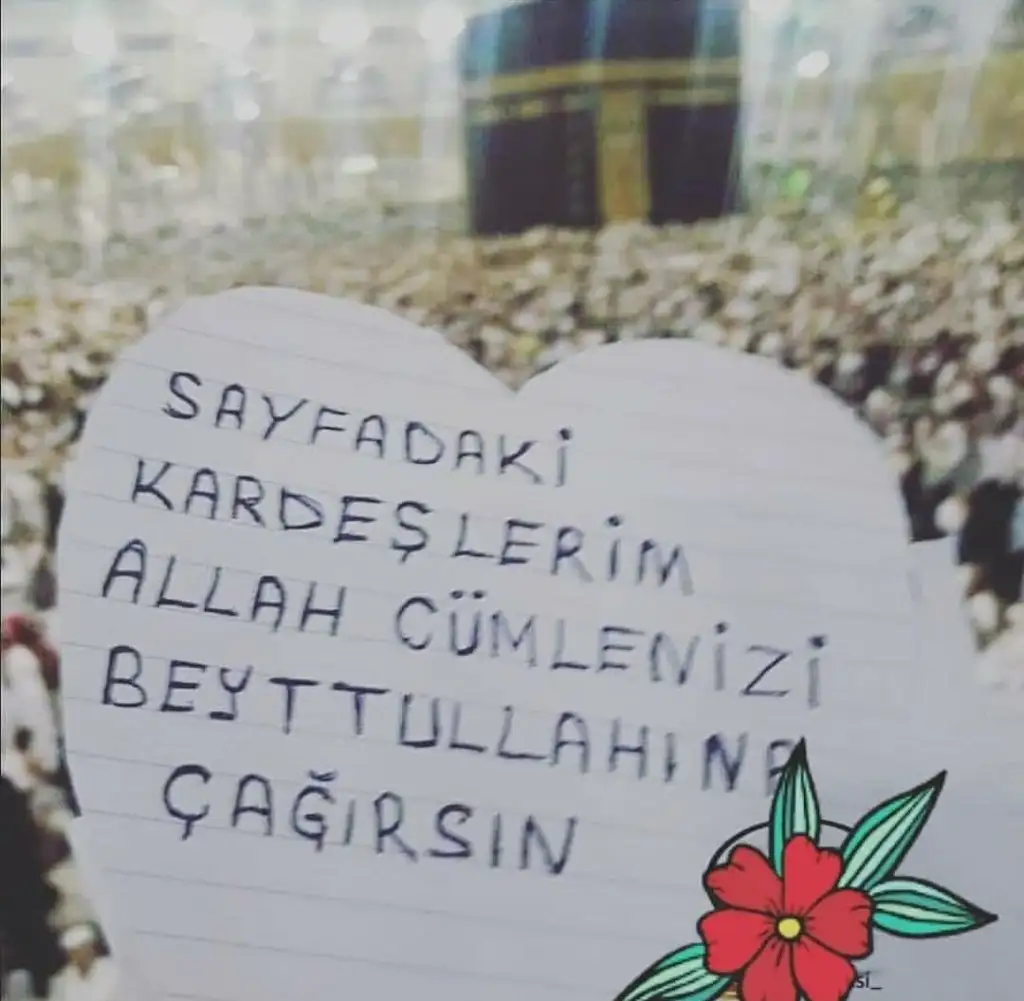 SAYFADAKİ
KARDEŞLERİM
ALLAH CÜMLENİZİ
BEYTTULLAHINA
ÇAĞIRSIN